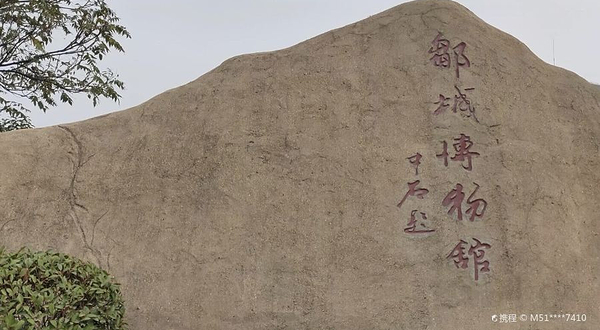 邹城博物馆
中石题
携程 © M51****7410